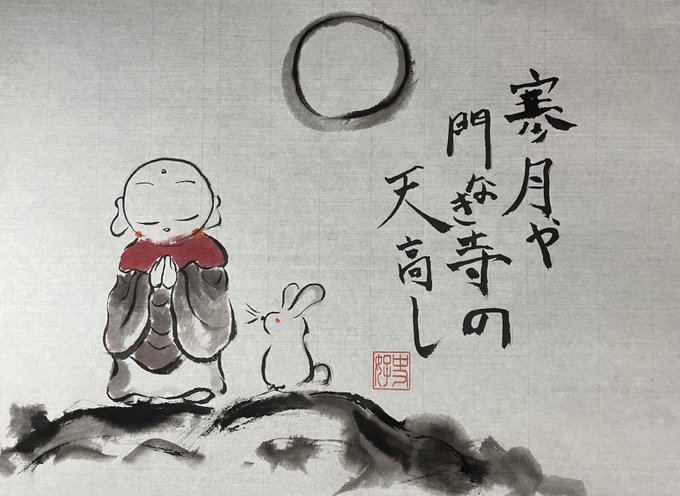 寒月や
門なき寺の
天高し